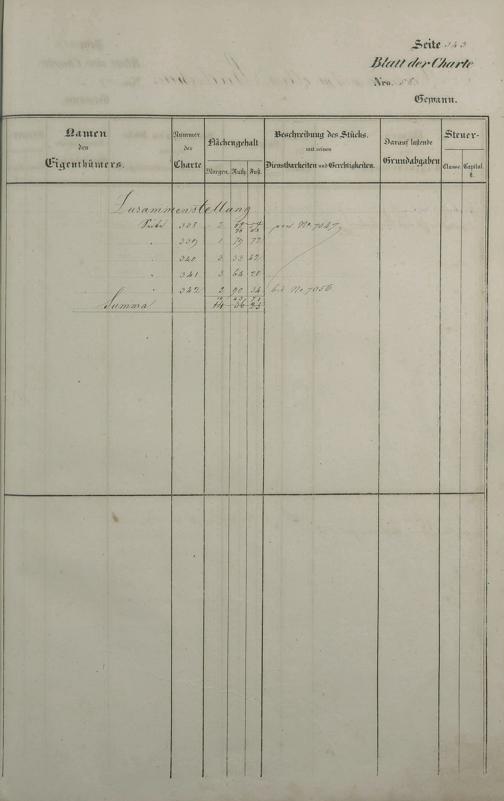 Seite 343
Blatt der Charte
Nro.
Gewann.
Namen
den
Eigenthümers.
Nummer
der
Charte
Flächengehalt
Morgen. Ruth. Fuß.
Beschreibung des Stücks.
mit seinen
Dienstbarkeiten und Gerechtigkeiten.
Darauf lastende
Grundabgaben
Steuer-
Classe. Capital.
fl.
Zusammenstellung
Seite 338 2 von No 7047
339 1 79 77
340 3 33 42
341 3 64 28
342 2 90 34 bis No 7056
Summa 14 36